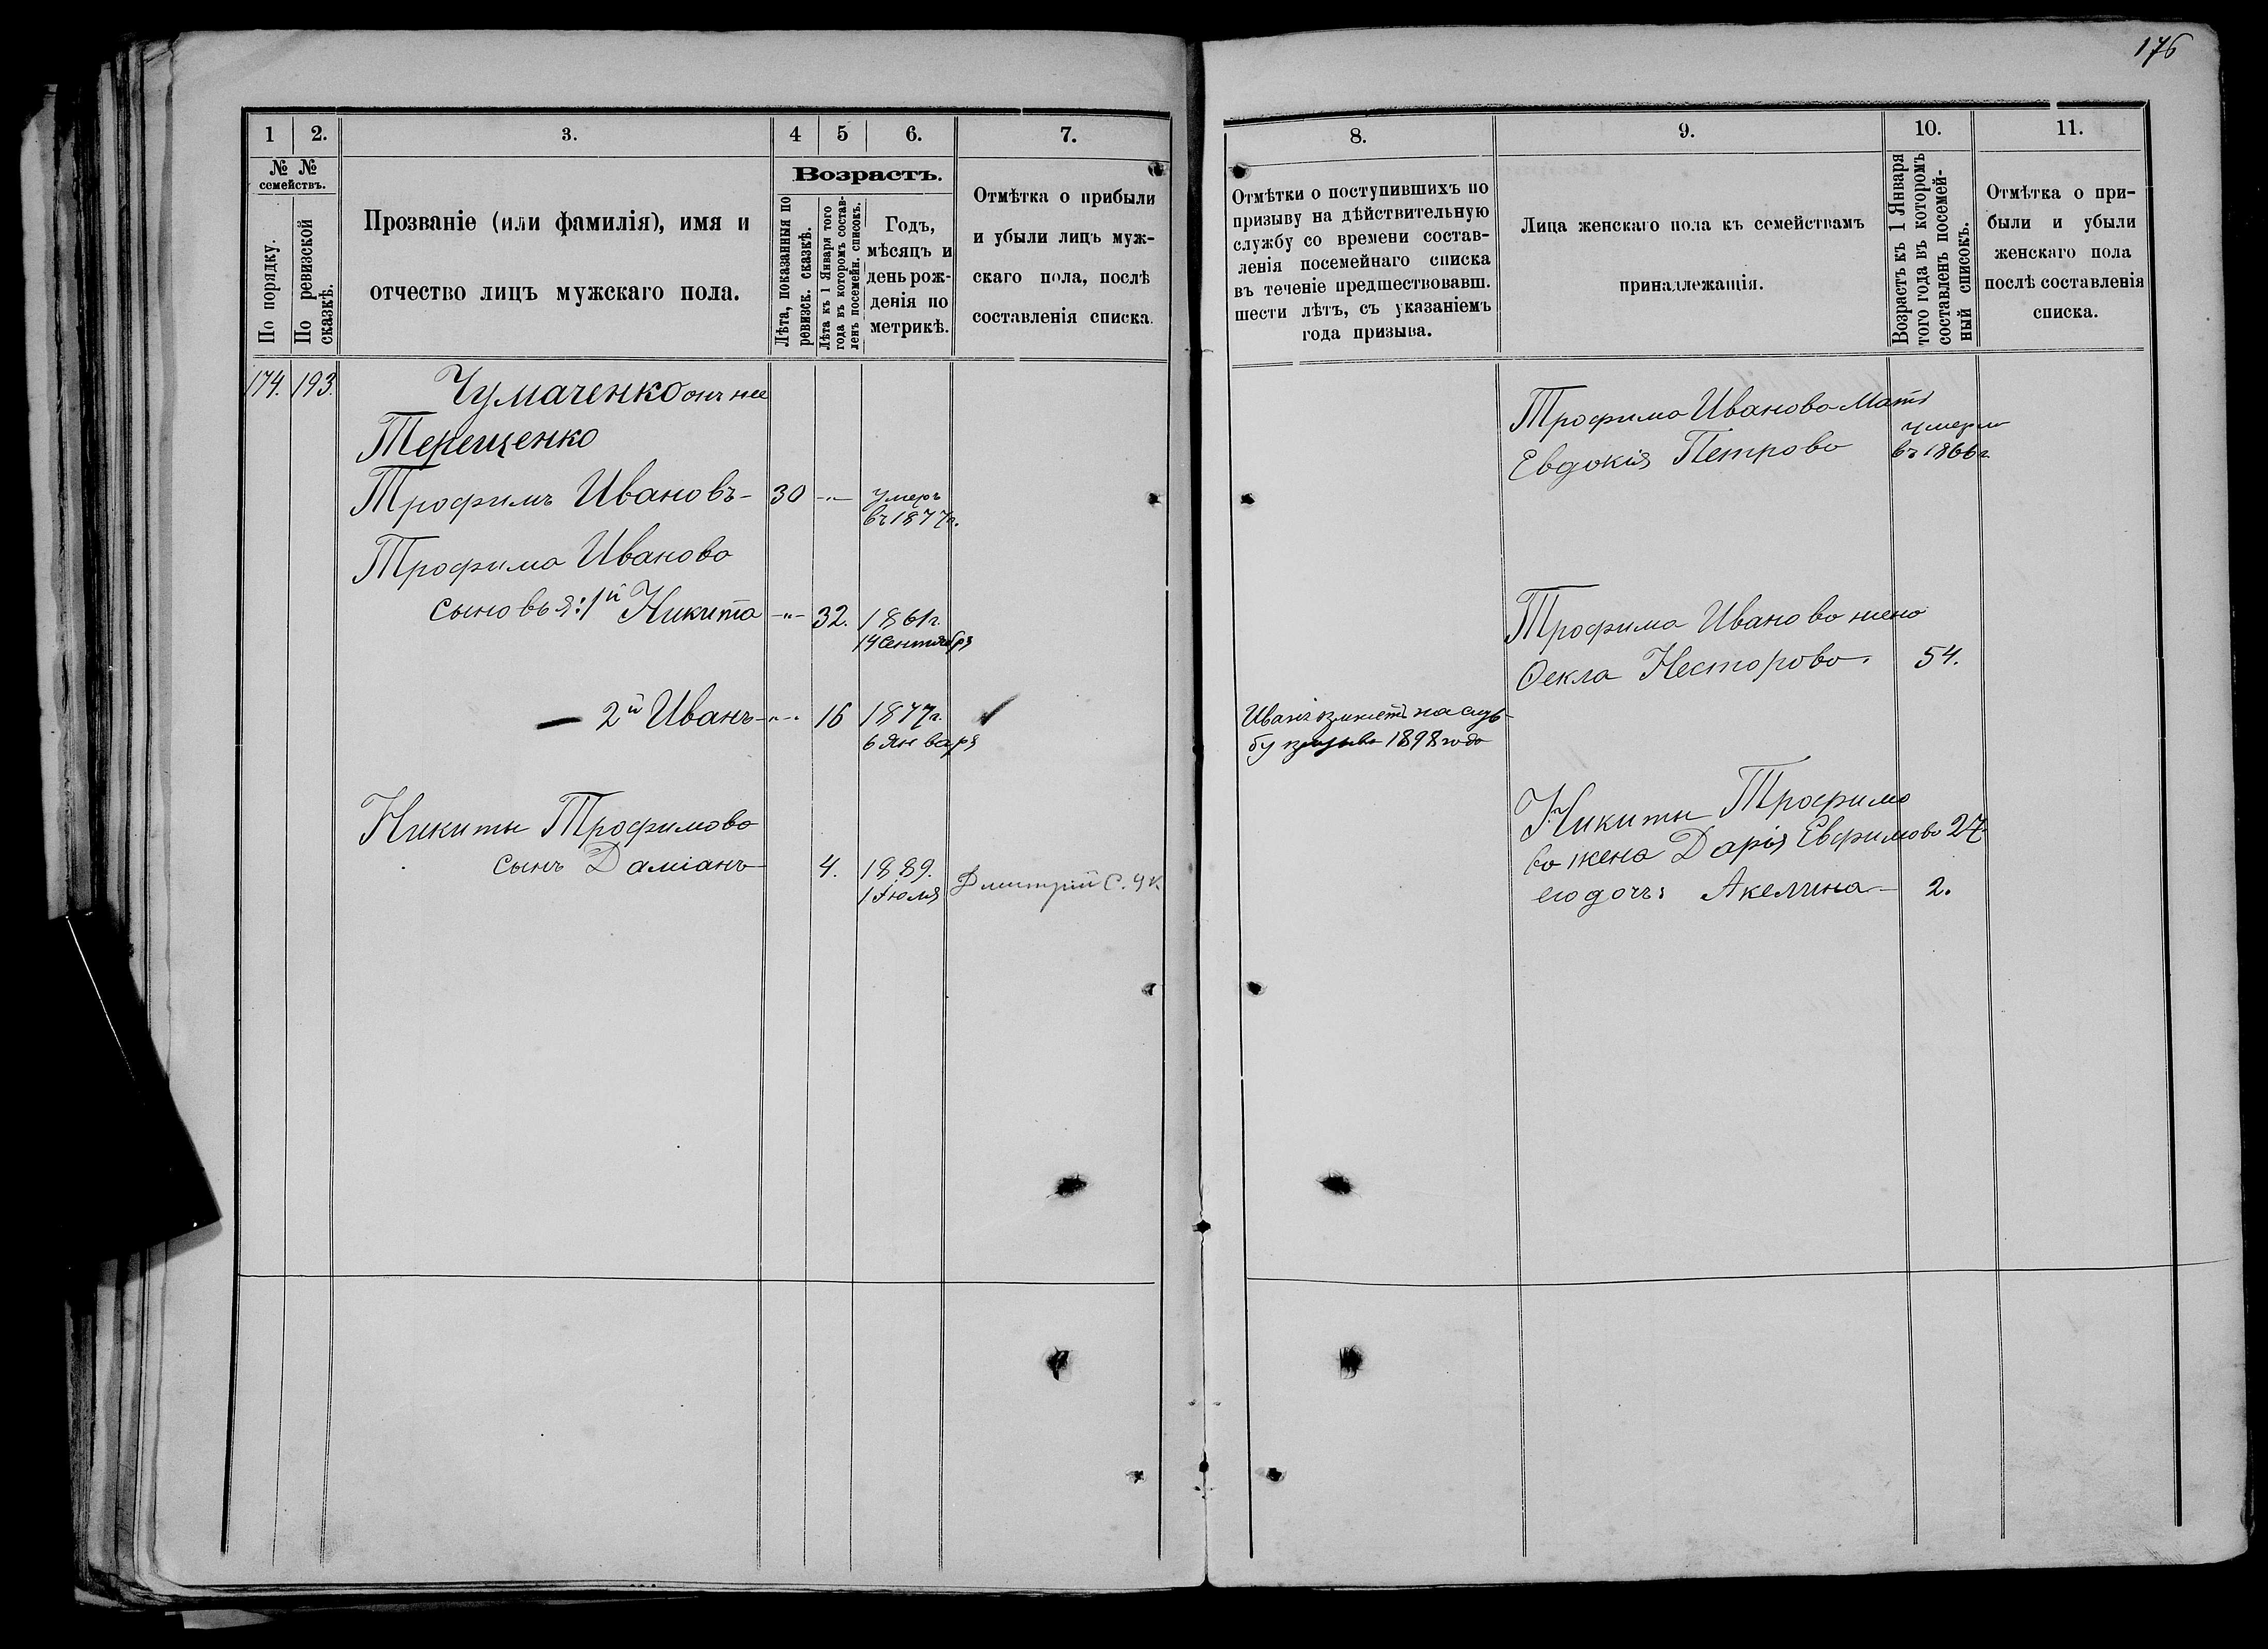 176
1 2. 3. 4 5 6. 7.
№ №
семействъ.
По порядку.
По ревизской
сказкѣ.
Прозваніе (или фамилія), имя и
отчество лицъ мужскаго пола.
Возрастъ.
Лѣта, показанныя по
ревизск. сказкѣ.
Лѣта къ 1 Января того
года въ которомъ состав-
ленъ посемейн. списокъ.
Годъ,
мѣсяцъ и
день рож-
денія по
метрикѣ.
Отмѣтка о прибыли
и убыли лицъ муж-
скаго пола, послѣ
составленія списка.
174. 193. Чумаченко онъ же
Терещенко
Трофимъ Ивановъ- 30 -"- умеръ
въ 1877г.
Трофима Иванова
сыновья: 1й Никита -"- 32. 1861г.
14 Сентября
— 2й Иванъ -"- 16 1877г.
6 Января
Никиты Трофимова
сынъ Даміанъ- 4. 1889.
1 Іюля
Дмитрій С.
8. 9. 10. 11.
Отмѣтки о поступившихъ по
призыву на дѣйствительную
службу со времени состав-
ленія посемейнаго списка
въ теченіе предшествовавш.
шести лѣтъ, съ указаніемъ
года призыва.
Лица женскаго пола къ семействамъ
принадлежащія.
Возрастъ къ 1 Января
того года въ которомъ
составленъ посемей-
ный списокъ.
Отмѣтка о при-
были и убыли
женскаго пола
послѣ составленія
списка.
Трофима Иванова мать
Евдокія Петрова умерла
въ 1866г.
Трофима Иванова жена
Ѳекла Несторова. 54.
Иванъ на служ-
бу призыва 1898 года
Никиты Трофимо
ва жена Дарія Евфимова 27
его дочь: Акелина- 2.